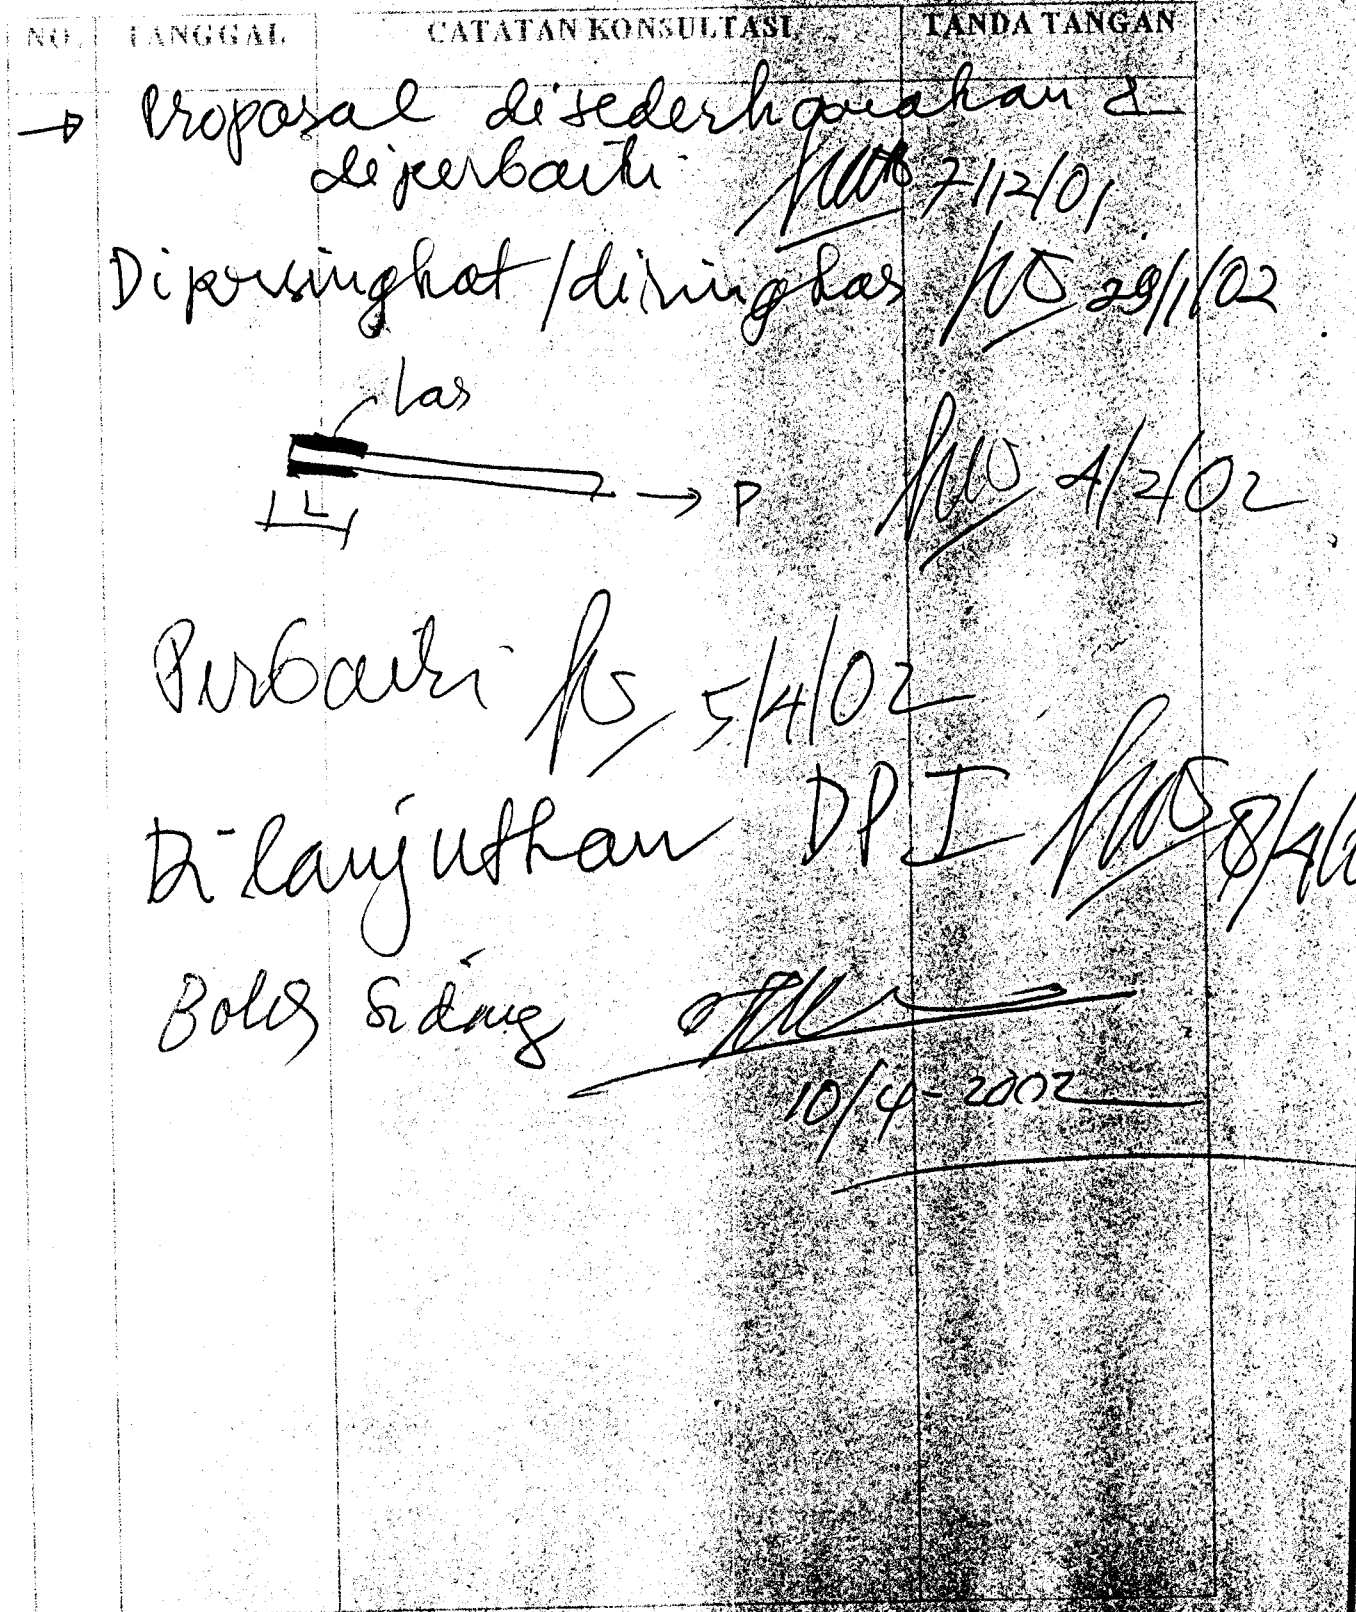 NO. TANGGAL CATATAN KONSULTASI TANDA TANGAN
→ Proposal disederhanakan &
diperbaiki 7/12/01
Dipersingkat / diringkas 29/1/02
las
L → P 4/2/02
Perbaiki 5/4/02
Dilanjutkan DP I 8/4/
Boleh Sidang
10/4-2002